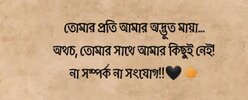 তোমার প্রতি আমার অদ্ভুত মায়া...
অথচ, তোমার সাথে আমার কিছুই নেই!
না সম্পর্ক না সংযোগ!!🖤🍁